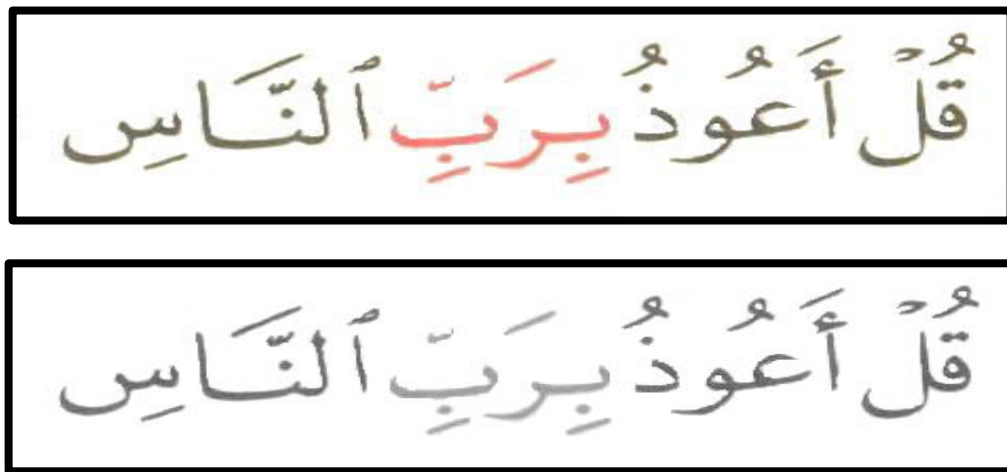 قُلْ أَعُوذُ بِرَبِّ ٱلنَّاسِ
قُلْ أَعُوذُ بِرَبِّ ٱلنَّاسِ